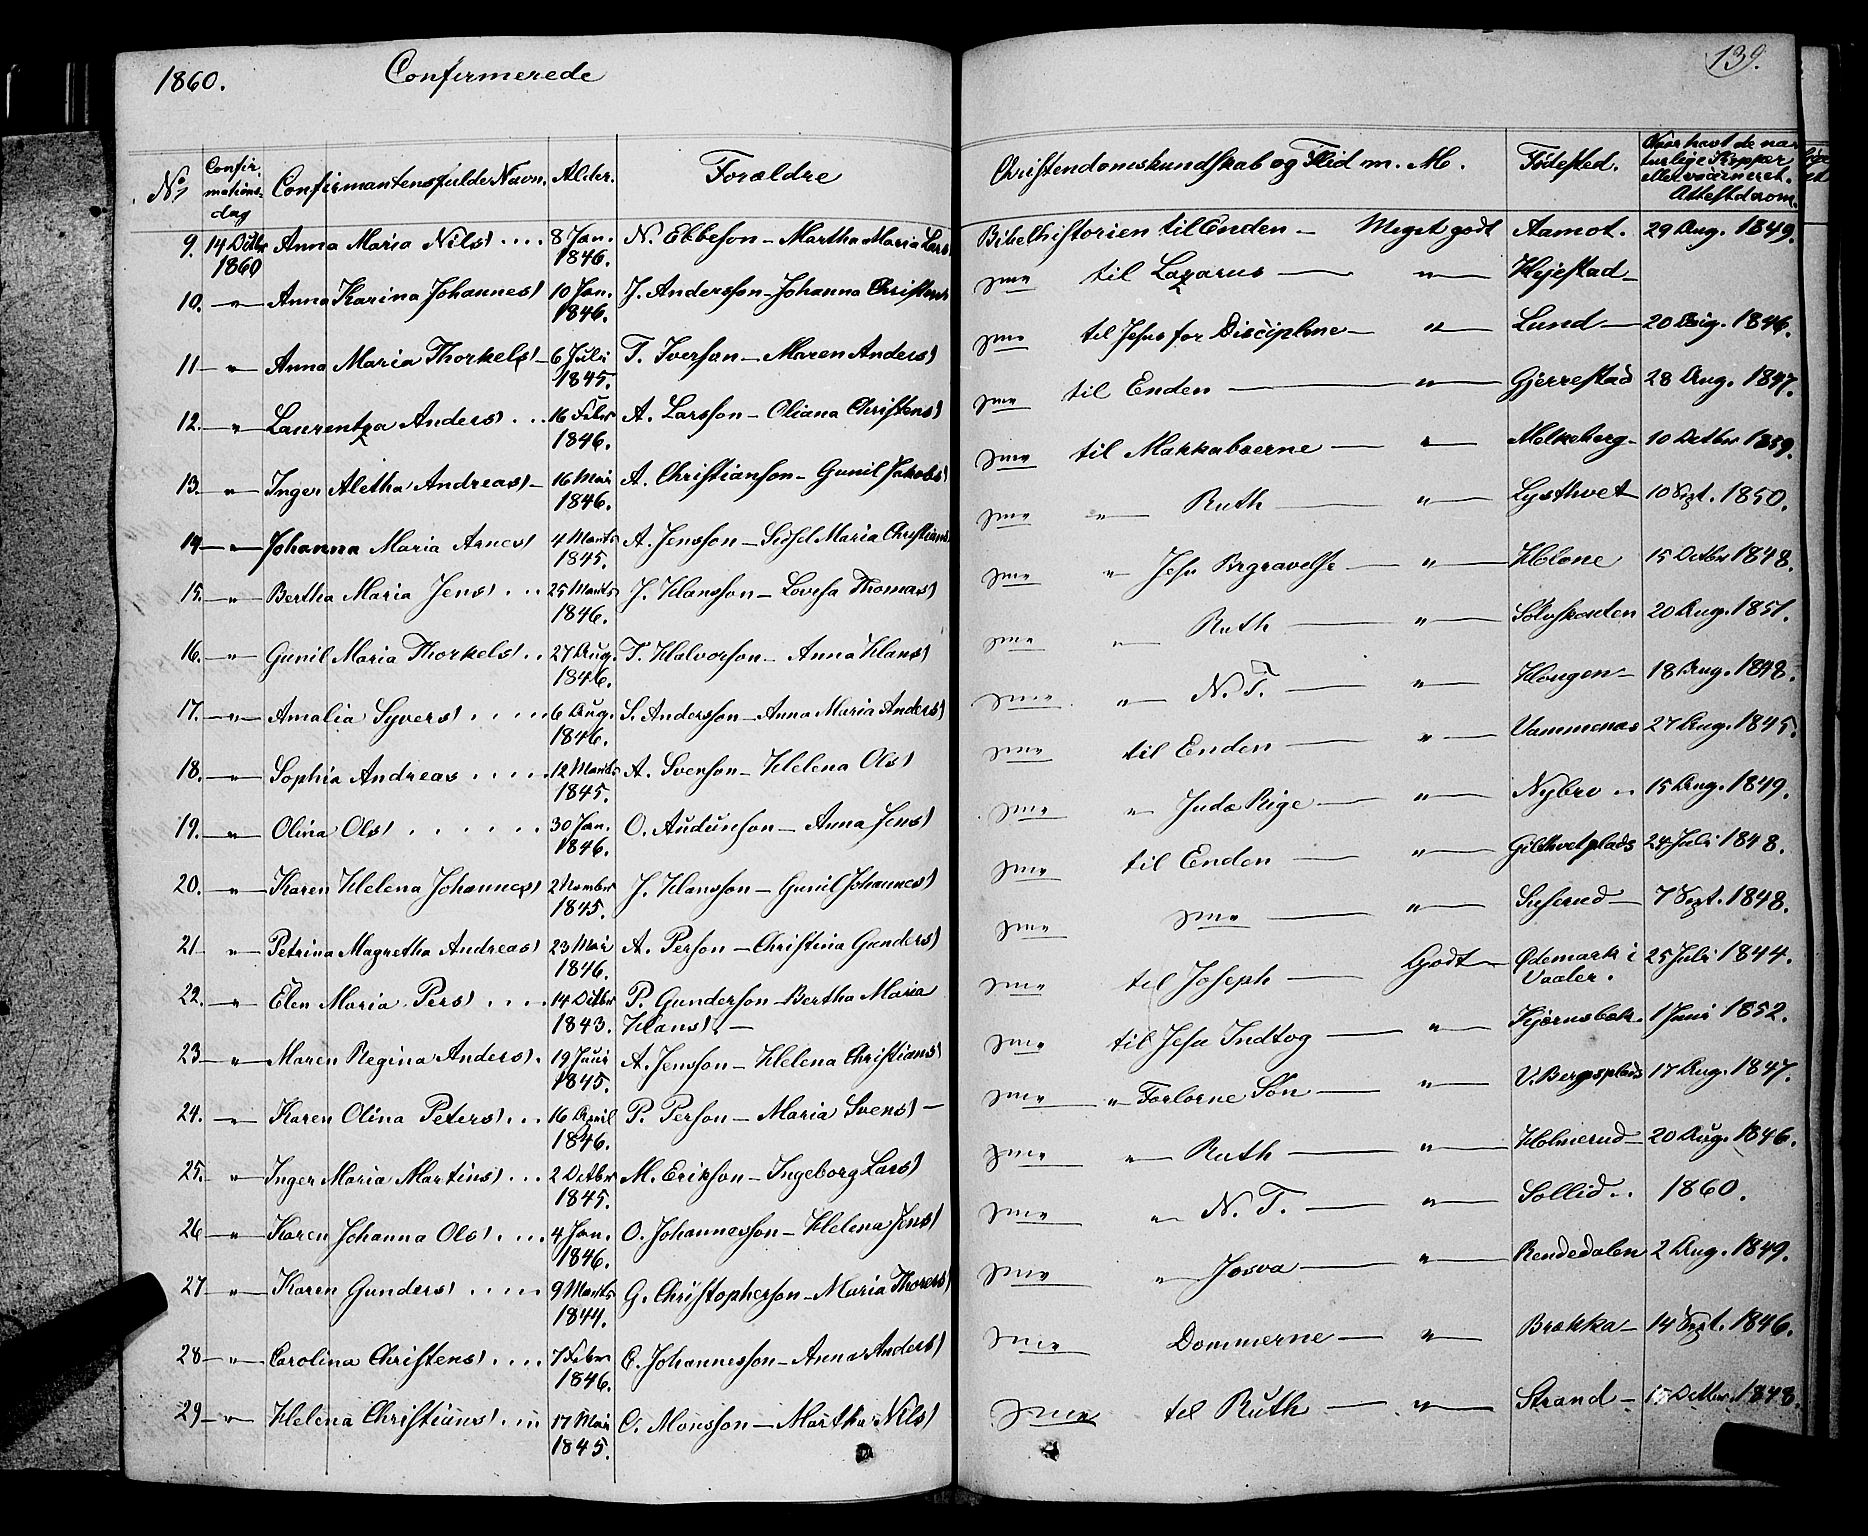 1860. Confirmerede
No Confirmations-dag Confirmantens fulde Navn. Alder. Forældre
9. 14 Octbr 1860 Anna Maria Nilsd .... 8 Jan. 1846. N. Ebbeson – Martha Maria Lars
10. — " — Anna Karina Johannesd 10 Jan. 1846. J. Andersson – Johanna Christens
11 — " — Anna Maria Thorkelsd – 6 Juli 1845. T. Iverson – Maren Andersd
12. — " — Laurentza Andersd ... 16 Febr 1846. A. Larsson – Oliana Christensd
13. — " — Inger Aletha Andreasd – 16 Mai 1846. A. Christianson – Gunil Jakobsd
14 — " — Johanna Maria Arnesd 4 Marts 1845. A. Jensson – Sidsel Maria Christians
15. — " — Bertha Maria Jensd ... 25 Marts 1846. J. Hansson – Lovisa Thomasd
16. — " — Gunil Maria Thorkelsd .. 27 Aug. 1846. T. Halvorson – Anna Hansd
17. — " — Amalia Syversd .... 6 Aug. 1846. S. Andersson – Anna Maria Andersd
18. — " — Sophia Andreas ..... 12 Marts 1845. A. Svenson – Helena Olsd
19. — " — Olina Olsd ...... 30 Jan. 1846. O. Audunson – Anna Jensd
20. — " — Karen Helena Johannesd 2 Novmbr 1845. J. Hansson – Gunil Johannesd
21 — " — Petrina Magretha Andreasd 23 Mai 1846. A. Person – Christina Gundersd
22. — " — Elen Maria Persd .... 14 Octbr 1843. P. Gunderson – Bertha Maria Hansd. –
23 — " — Maren Regina Andersd. 19 Juni 1845. A. Jensson – Helena Christiansd
24. — " — Karen Olina Petersd ... 16 April 1846. P. Person – Maria Svensd –
25. — " — Inger Maria Martinsd ... 2 Octbr 1845. M. Erikson – Ingeborg Larsd
26 — " — Karen Johanna Olsd .... 4 Jan. 1846. O. Johannesson – Helena Jensd
27 — " — Karen Gundersd ..... 9 Marts 1844. G. Christopherson – Maria Thoresd
28 — " — Carolina Christensd .... 7 Febr 1846. C. Johannesson – Anna Andersd
29 — " — Helena Christiansd .... 17 Mai 1845. C. Monsson – Martha Nilsd
139.
Christendomskundskab og Flid m. M. Fødested. Naar havt de naturlige Kopper eller vaccineret. Attest derom.
Bibelhistorien til Enden – Meget godt Aamot. 29 Aug. 1849.
til Lazarus — " — Hejestad –
til Jesus for Disciplene — " — Lund — 20 Aug. 1846.
til Enden — " — Gjerrestad 28 Aug. 1847.
til Makkabæerne — " — Melkeberg – 10 Octbr 1859.
" Ruth — " — Lysthvet 10 Sept. 1850.
" Jesu Begravelse — " — Holone 15 Octbr 1848.
" Ruth — " — 20 Aug. 1851.
" N. T. — " — Hougen – 18 Aug. 1848.
til Enden — " — Vammenæs 27 Aug. 1845.
" Juda Rige — " — Nybro .. 15 Aug. 1849.
til Enden — " — Gilthvetplads 24 Juli 1848.
— " — 7 Sept. 1848.
til Joseph — Godt – Ødemark i Vaaler. 25 Juli 1844.
til Jesu Indtog — " — Kjærnsbæk. 1 Juni 1852.
" Forlorne Søn — " — V. Bergsplads 17 Aug. 1847.
" Ruth — " — Holmerud – 20 Aug. 1846.
" N. T. — " — Sollid .. 1860.
" Josva — " — Rendedalen 2 Aug. 1849.
Dommerne — " — Brækka – 14 Sept. 1846.
til Ruth — " — Strand – 15 Octbr. 1848.